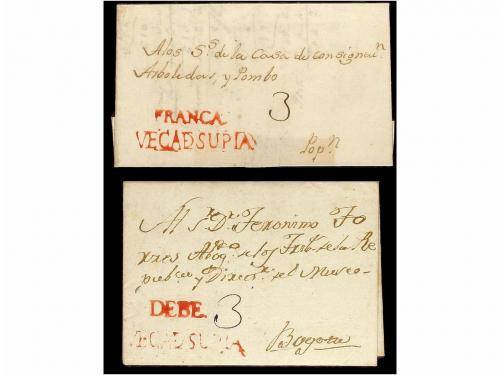 Alos S.s de la Casa de consignan.n
Arboledas, y Pombo
3
FRANCA
VEGADSUPIA
Pop.n
Al S.r D.r Jeronimo To
rres Abog.do de los Trib.s de la Re
publica y Direc.r del Museo-
DEBE
3
VEGADSUPIA
Bogota